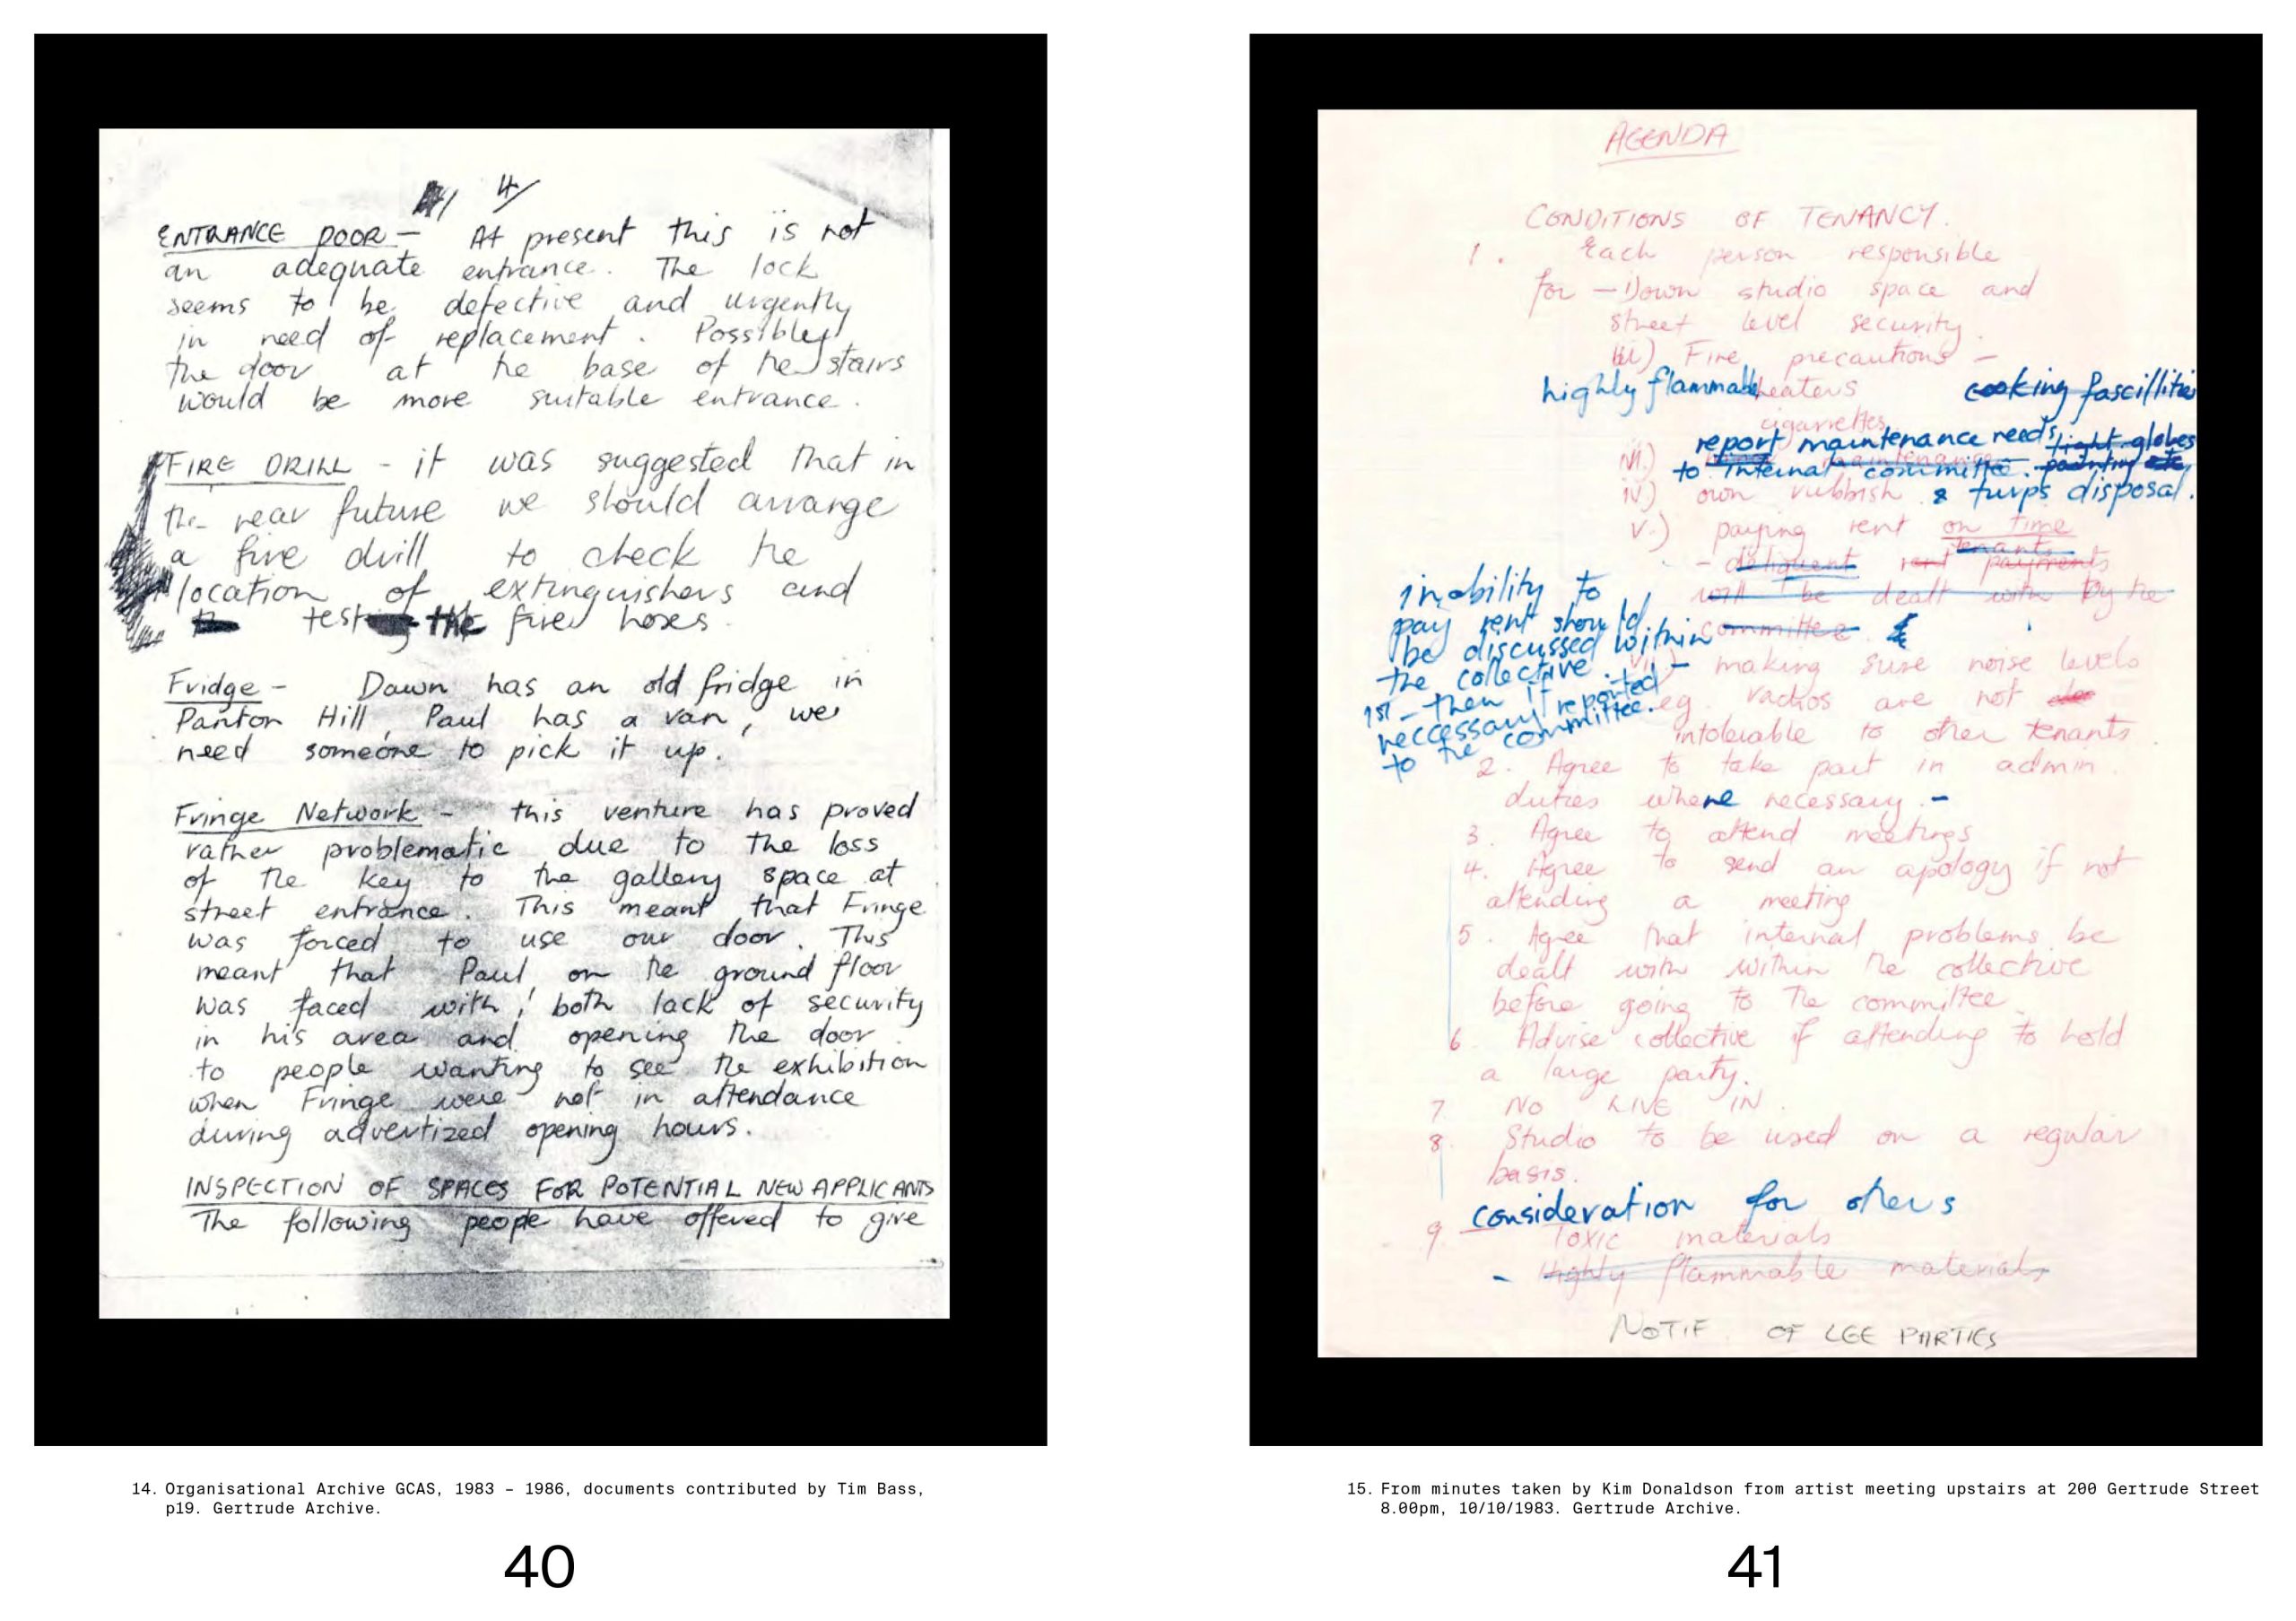 4/
ENTRANCE DOOR - At present this is not
an adequate entrance. The lock
seems to be defective and urgently
in need of replacement. Possibley
the door at he base of he stairs
would be more suitable entrance.
FIRE DRILL - it was suggested that in
the near future we should arrange
a fire drill to check he
location of extinguishers and
test the fire hoses.
Fridge - Dawn has an old fridge in
Panton Hill, Paul has a van, we
need someone to pick it up.
Fringe Network - this venture has proved
rather problematic due to the loss
of the key to the gallery space at
street entrance. This meant that Fringe
was forced to use our door. This
meant that Paul on he ground floor
was faced with; both lack of security
in his area and opening the door
to people wanting to see the exhibition
when Fringe were not in attendance
during advertized opening hours.
INSPECTION OF SPACES FOR POTENTIAL NEW APPLICANTS
The following people have offered to give
14. Organisational Archive GCAS, 1983 – 1986, documents contributed by Tim Bass,
p19. Gertrude Archive.
40
AGENDA
CONDITIONS OF TENANCY.
1. Each person responsible
for - i) own studio space and
street level security.
Fire precautions -
highly flammable heaters cooking fascillities
cigarettes
report maintenance needs light globes
to internal committee. painting etc
iv) own rubbish & turps disposal.
v.) paying rent on time
tenants
- deliquent rent payments
will be dealt with by he
committee
inability to
pay rent should
be discussed within
the collective
1st - then if
neccessary reported
to he committee.
making sure noise levels
eg. radios are not
intolerable to other tenants.
2. Agree to take part in admin.
duties where necessary. -
3. Agree to attend meetings
4. Agree to send an apology if not
attending a meeting
5. Agree that internal problems be
dealt with within he collective
before going to the committee.
6. Advise collective if attending to hold
a large party.
7. NO LIVE IN.
8. Studio to be used on a regular
basis.
consideration for others
9. Toxic materials
- Highly flammable materials
NOTIF. OF LGE PARTIES
15. From minutes taken by Kim Donaldson from artist meeting upstairs at 200 Gertrude Street
8.00pm, 10/10/1983. Gertrude Archive.
41